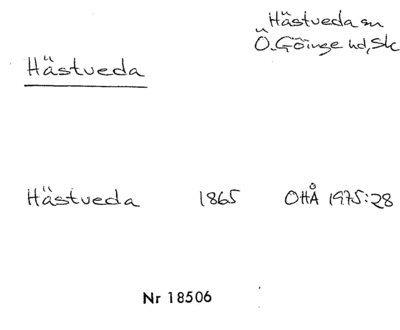 Hästveda sn
Ö. Göinge hd, Sk
Hästveda
Hästveda 1865 OHÅ 1975:28
Nr 18506